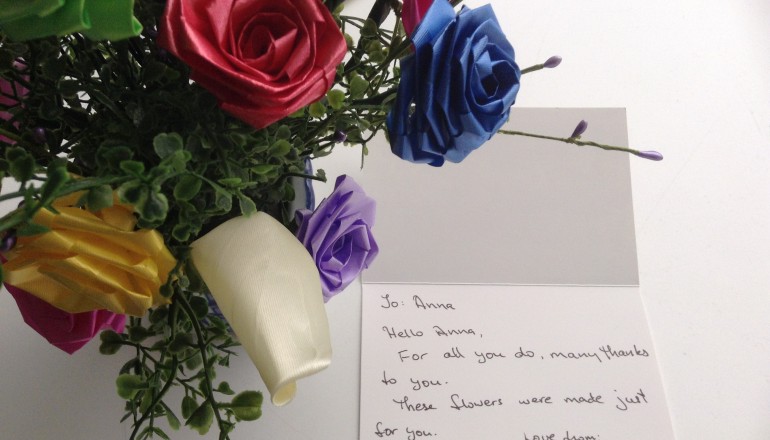 To: Anna
Hello Anna,
For all you do, many thanks
to you.
These flowers were made just
for you.
Love from: